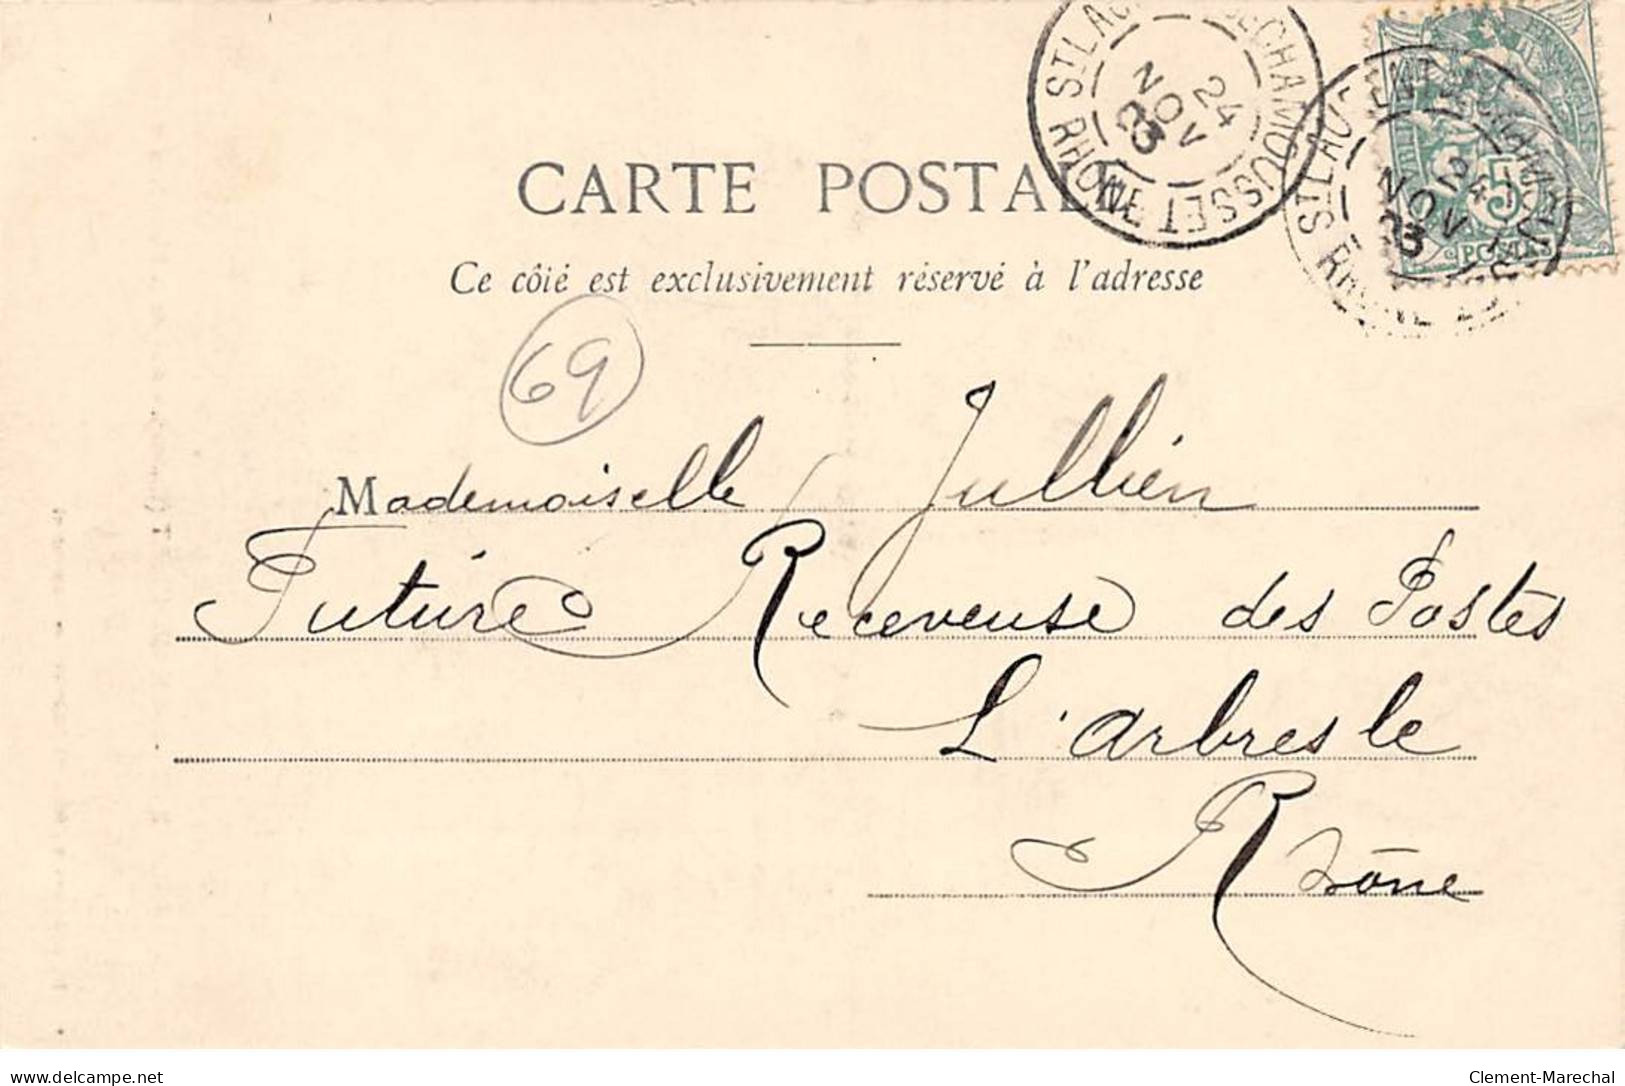 CARTE POSTALE
Ce côté est exclusivement réservé à l'adresse
69
Mademoiselle Jullien
Future Receveuse des Postes
L'arbresle
Rhône
ST LAU ECHAMOUSSET
24
NOV
03
RHONE
ST LAURENT
24
NOV
03
RHONE
5
POSTES
delcampe.net
Clement-Marechal